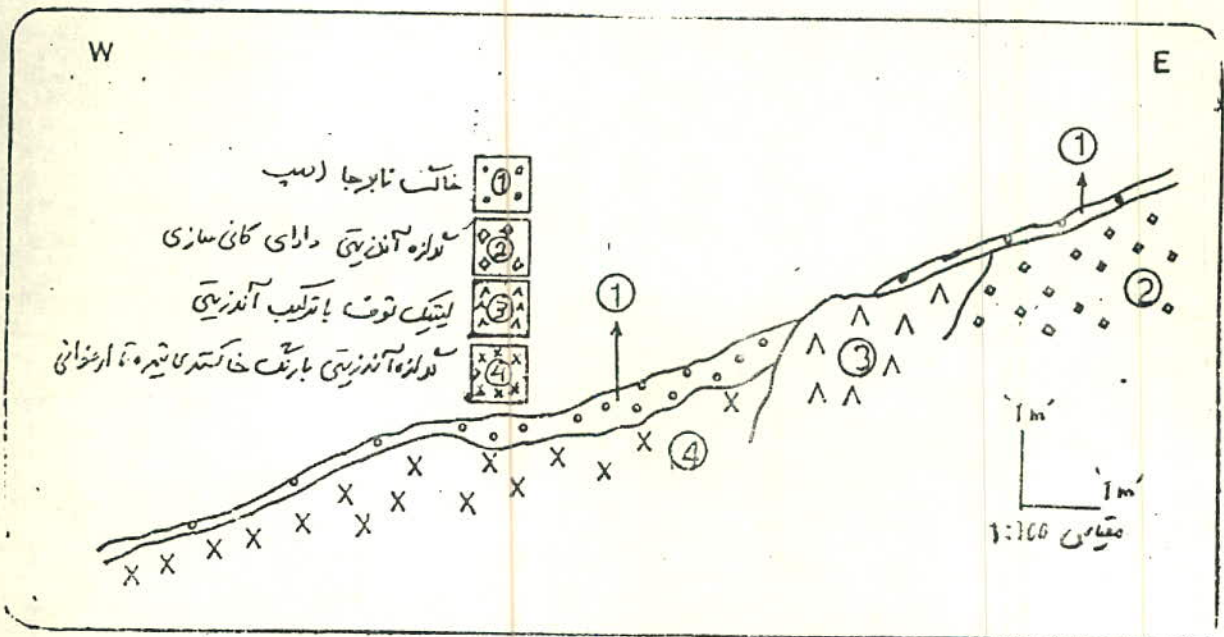 W
E
① خاک نابرجا
② گدازه آندزیتی دارای کانی سازی
③ لیتیک توف با ترکیب آندزیتی
④ گدازه آندزیتی با رنگ خاکستری تیره تا ارغوانی
①
①
②
③
④
1m
1m
مقیاس 1:100